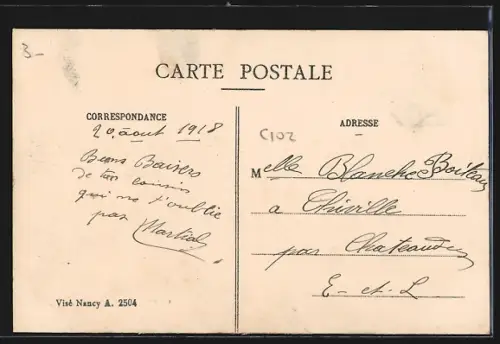 3-
CARTE POSTALE
CORRESPONDANCE
20 août 1918
Bons Baisers
de ton cousin
qui ne t'oublie
pas Martial
Visé Nancy A. 2504
ADRESSE
C102
Melle Blanche Boiteau
a Thiville
par Chateaudun
E-et-L